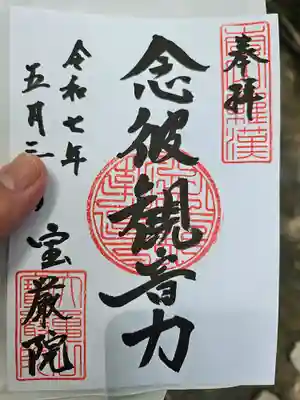 奉拝
念彼観音力
令和七年
五月三
宝厳院